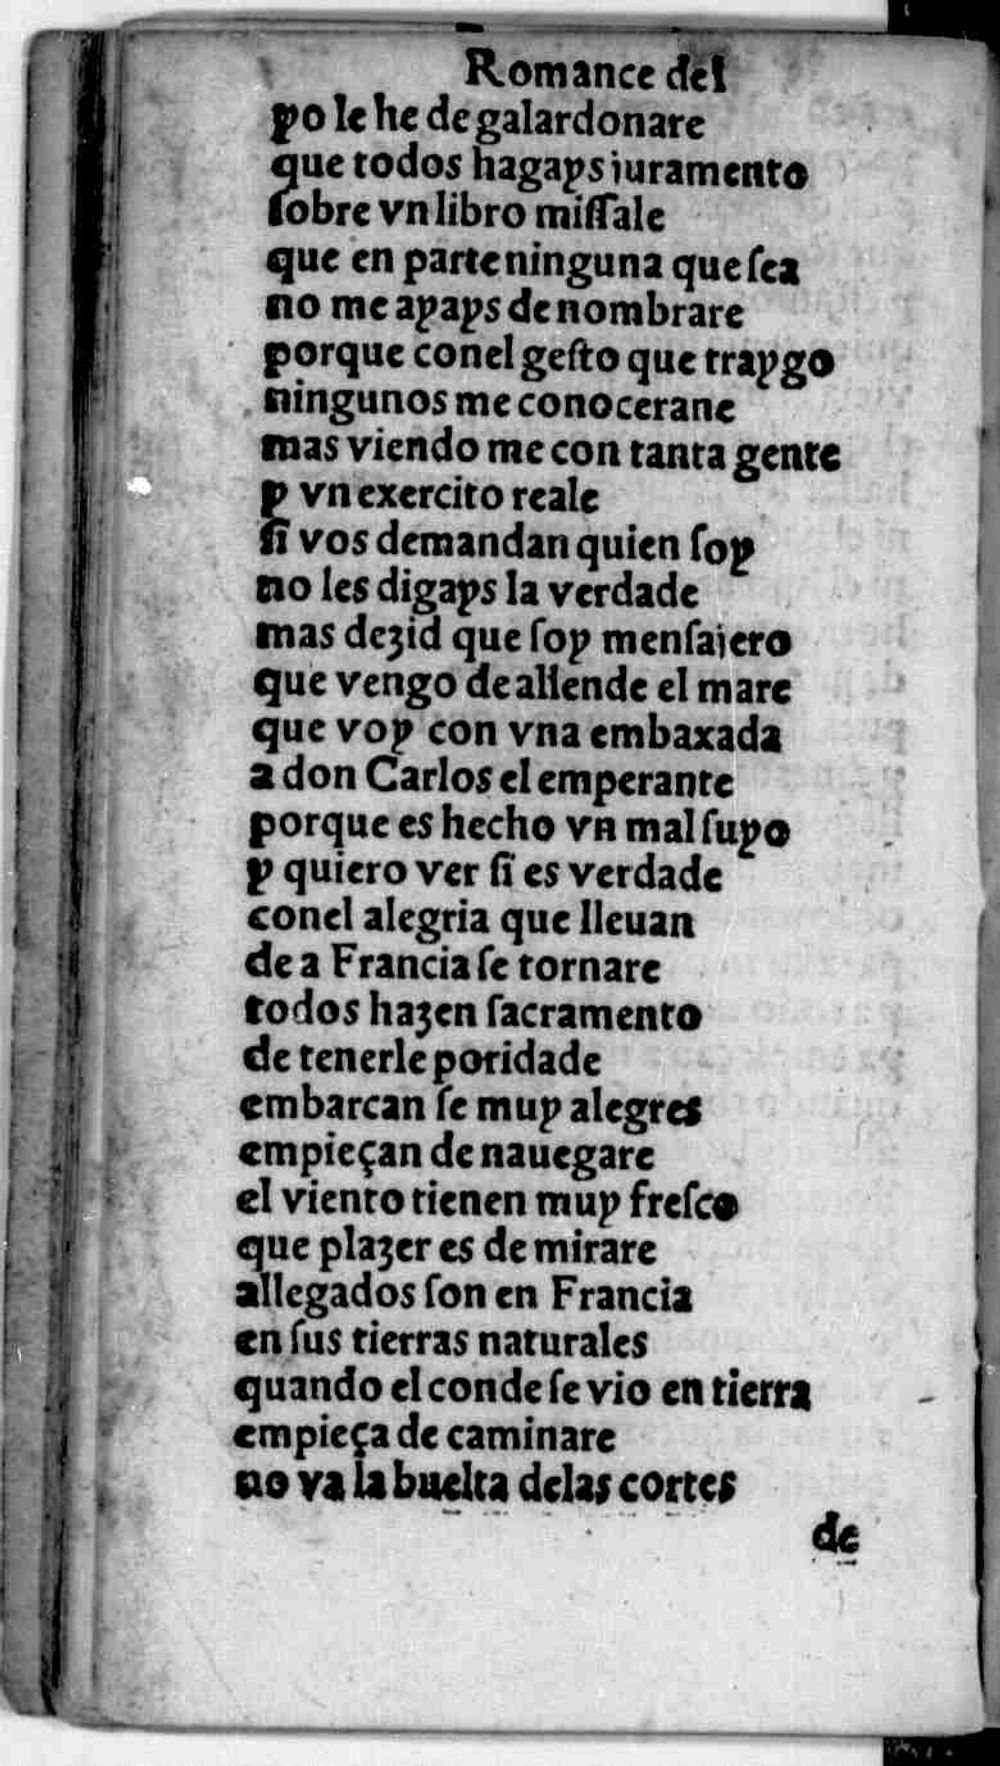 Romance del
yo le he de galardonare
que todos hagays iuramento
ſobre vn libro miſſale
que en parte ninguna que ſea
no me ayays de nombrare
porque conel geſto que traygo
ningunos me conocerane
mas viendo me con tanta gente
y vn exercito reale
ſi vos demandan quien ſoy
no les digays la verdade
mas dezid que ſoy menſaiero
que vengo de allende el mare
que voy con vna embaxada
a don Carlos el emperante
porque es hecho vn mal ſuyo
y quiero ver ſi es verdade
conel alegria que lleuan
de a Francia ſe tornare
todos hazen ſacramento
de tenerle poridade
embarcan ſe muy alegres
empieçan de nauegare
el viento tienen muy freſco
que plazer es de mirare
allegados ſon en Francia
en ſus tierras naturales
quando el conde ſe vio en tierra
empieça de caminare
no va la buelta delas cortes
de